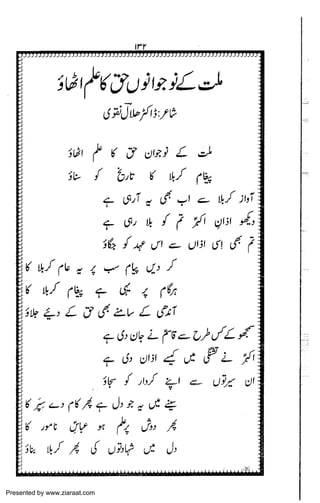 ۱۳۲
ملت کے نوجوانوں حق کا علم اٹھاؤ
شاعر: ڈاکٹر ھلال نقوی
ملت کے نوجوان حق کا علم اٹھاؤ
پیغام کربلا کا تاریخ کو سناؤ
آواز کربلا سے اب بھی یہ آرہی ہے
دیکھو اذان اکبرؑ تم کو بلا رہی ہے
تم بھی اسی اذاں سے اس عہد کو جگاؤ
کر دیں پیام سب پر یہ عام کربلا کا
ہر گام پر یہی ہے پیغام کربلا کا
آندھی کے سامنے بھی حق کے دیئے جلاؤ
سمجھو کے کس طرح سے قاسمؑ نے جان دی ہے
اکبرؑ نے تشنگی میں کیسے اذان دی ہے
ان سیرتوں سے اپنے کردار کو سجاؤ
سینے میں یہ جو دل ہے پھر کام دے سپر کا
پھر دوش پر علم ہو عباسؑ نامور کا
دل میں شہادتوں کی پھر کربلا بناؤ
Presented by www.ziaraat.com